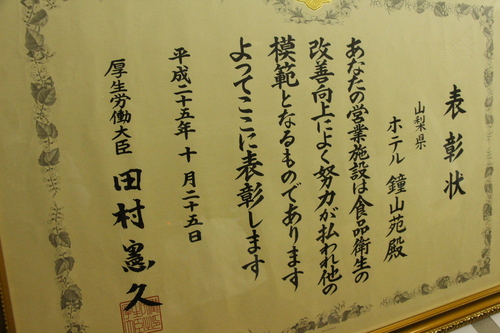 表彰状
山梨県
ホテル鐘山苑殿
あなたの営業施設は食品衛生の
改善向上によく努力が払われ他の
模範となるものであります
よってここに表彰します
平成二十五年十月二十五日
厚生労働大臣 田村憲久